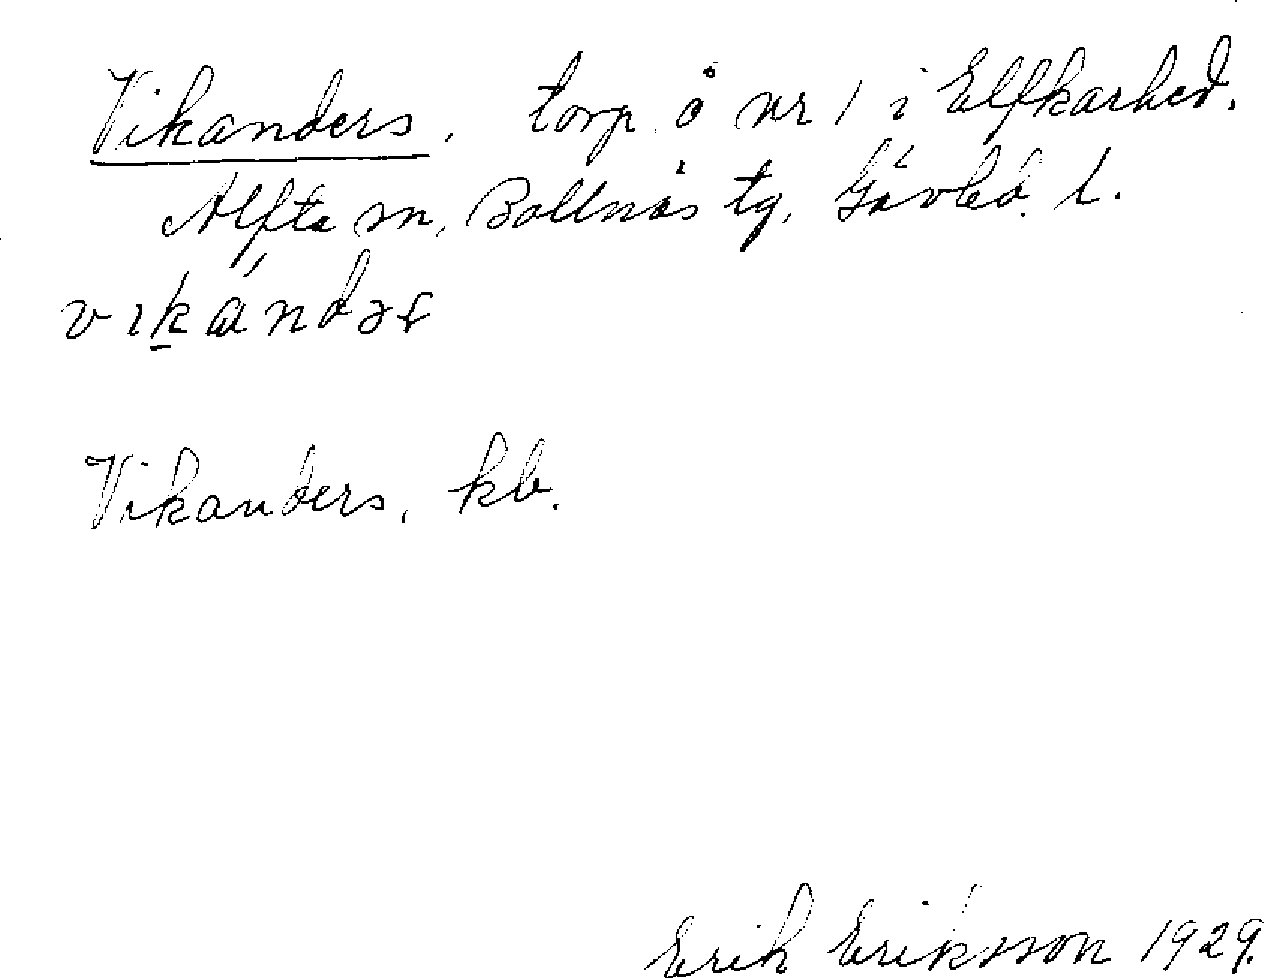 Vikanders, torp å nr 1 i Elfkarhed.
Alfta sn, Bollnäs tg, Gävleb. l.
Vikanders, kb.
Erik Eriksson 1929.